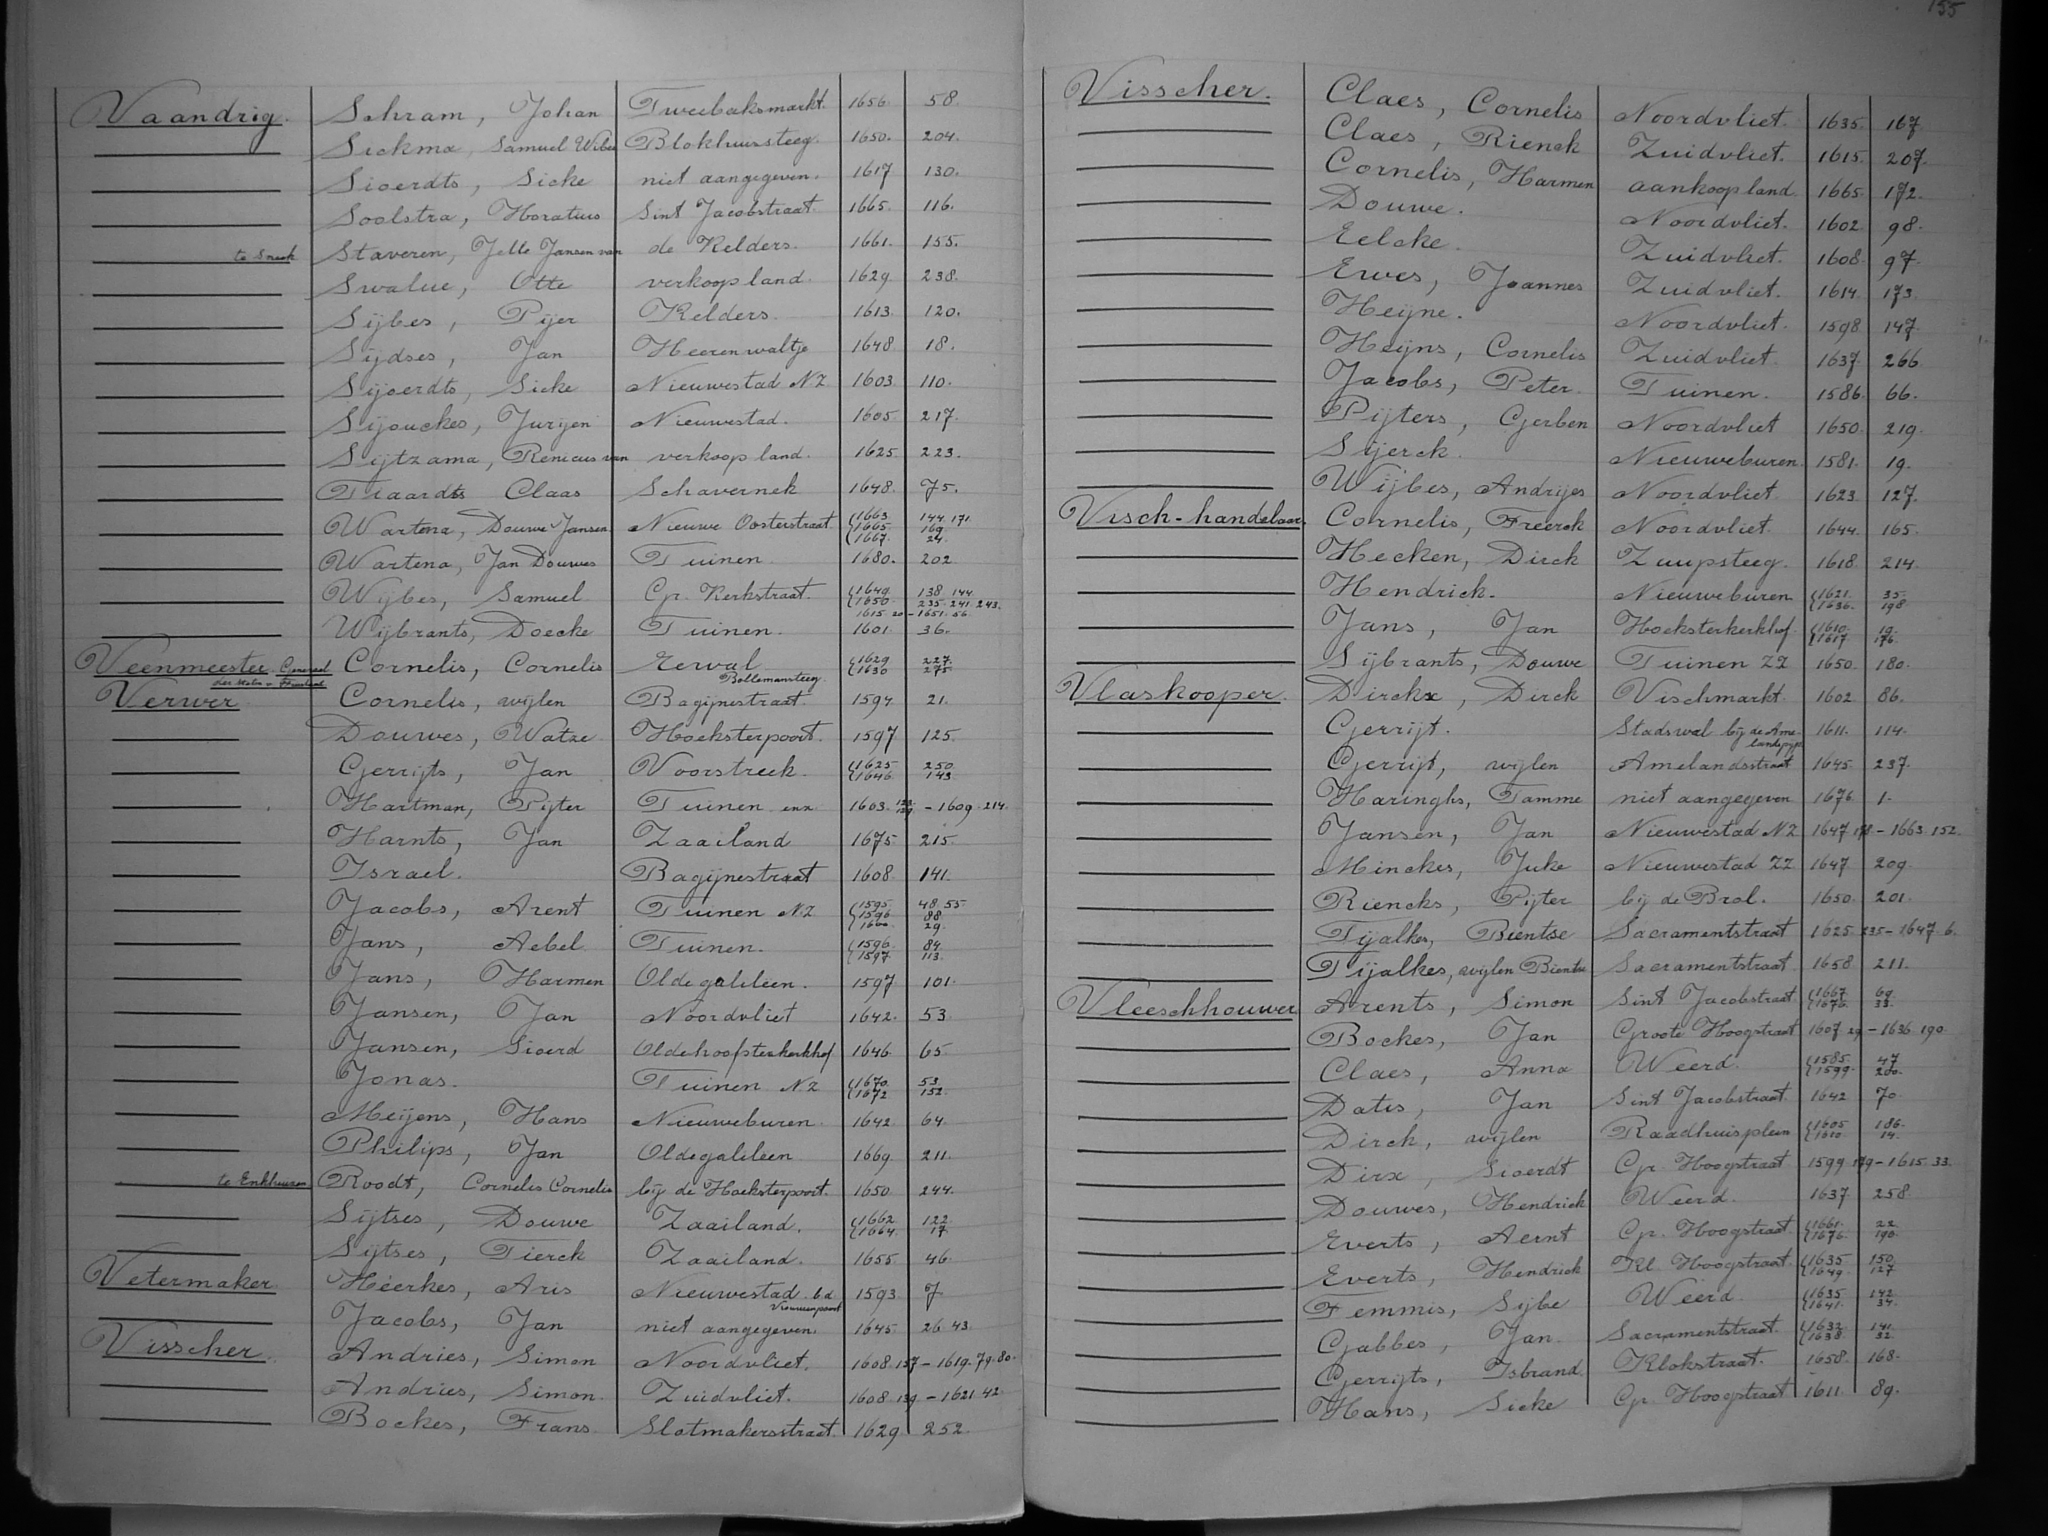 Vaandrig. Schram, Johan Tweebaksmarkt. 1656. 58.
Sickma, Samuel Wibes Blokhuissteeg. 1650. 204.
Sioerdts, Sicke niet aangegeven. 1617 130.
Soolstra, Horatius Sint Jacobstraat. 1665. 116.
te Sneek Staveren, Jelle Jansen van de Kelders. 1661. 155.
Swalue, Otte verkoop land. 1629. 238.
Sijbes, Pijer Kelders. 1613. 120.
Sijdses, Jan Heerenwaltje 1648 18.
Sijoerdts, Sicke Nieuwestad NZ 1603. 110.
Sijouckes, Jurijen Nieuwestad. 1605 217.
Sijtzama, Renicus van verkoop land. 1625 223.
Tjaardts Claas Schavernek 1648. 75.
Wartena, Douwe Jansen Nieuwe Oosterstraat. 1663 144. 171. 1665 169. 1667. 24.
Wartena, Jan Douwes Tuinen. 1680. 202
Wijbes, Samuel Gr. Kerkstraat. 1649. 138. 144. 1650. 235. 241. 243. 1615. 20 - 1651. 56.
Wijbrants, Doecke Tuinen. 1601. 36.
Veenmeester Generaal Cornelis, Cornelis Eewal 1629 227. 1630 275.
Verwer Cornelis, wijlen Bollemansteeg. Bagijnestraat. 1594 21.
Douwes, Watze Hoeksterpoort. 1597 125.
Gerrijts, Jan Voorstreek. 1625 250. 1646. 143.
Hartman, Pijter Tuinen enz. 1603. 122. 129. - 1609. 214.
Harnts, Jan Zaailand 1675 215.
Israel. Bagijnestraat 1608 141.
Jacobs, Arent Tuinen NZ 1595. 48. 55 1596. 88. 29.
Jans, Aebel Tuinen. 1596. 84. 1597 113.
Jans, Harmen Oldegalileen. 1597 101.
Jansen, Jan Noordvliet 1642. 53.
Jansen, Sioerd Oldehoofsterkerkhof 1646. 65
Jonas. Tuinen NZ 1670. 53. 1672 152.
Meijens, Hans Nieuweburen. 1642. 64.
Philips, Jan Oldegalileen 1669. 211.
te Enkhuizen Roodt, Cornelis Cornelis bij de Hoeksterpoort. 1650. 244.
Sijtses, Douwe Zaailand. 1662. 122. 1664. 17.
Sijtses, Tierck Zaailand. 1655 46.
Vetermaker. Heerkes, Aris Nieuwestad b.d. Vrouwenpoort 1593 7
Jacobs, Jan niet aangegeven 1645 26. 43.
Visscher. Andries, Simon Noordvliet. 1608. 137 - 1619. 79. 80.
Andries, Simon. Zuidvliet. 1608. 139 - 1621. 42.
Bockes, Frans. Slotmakersstraat. 1629 252.
155
Visscher. Claes, Cornelis Noordvliet. 1635. 167.
Claes, Rienck Zuidvliet. 1615. 207.
Cornelis, Harmen aankoop land. 1665. 172.
Douwe. Noordvliet. 1602 98.
Eelcke. Zuidvliet. 1608. 97.
Ewes, Joannes Zuidvliet. 1614. 173.
Heijne. Noordvliet. 1598. 147.
Heijns, Cornelis Zuidvliet. 1637. 266.
Jacobs, Peter. Tuinen. 1586. 66.
Pijters, Gerben Noordvliet 1650. 219.
Sijerck. Nieuweburen. 1581. 19.
Wijbes, Andrijes Noordvliet. 1623. 127.
Visch-handelaar. Cornelis, Freerck Noordvliet. 1644. 165.
Hecken, Dirck Zuupsteeg. 1618. 214.
Hendrick. Nieuweburen 1621. 35. 1636. 198.
Jans, Jan Hoeksterkerkhof. 1610. 19. 1617. 176.
Sijbrants, Douwe Tuinen ZZ 1650. 180.
Vlaskooper. Dirckx, Dirck Vischmarkt. 1602 86.
Gerrijt. Stadswal bij de Amelandspijp 1611. 114.
Gerrijt, wijlen Amelandsstraat 1645 237.
Haringhs, Tamme niet aangegeven 1676 1.
Jansen, Jan Nieuwestad NZ 1647. 178. - 1663. 152.
Minckes, Juke Nieuwestad ZZ 1647 209.
Riencks, Pijter bij de Brol. 1650. 201.
Tijalkes, Bientse Sacramentstraat 1625. 235 - 1647. 6.
Tijalkes, wijlen Bientse Sacramentstraat. 1658. 211.
Vleeschhouwer. Arents, Simon Sint Jacobstraat. 1667. 69. 1676. 33.
Bockes, Jan Groote Hoogstraat 1607. 29. - 1636. 190.
Claes, Anna Weerd. 1585. 47 1599. 200.
Datis, Jan Sint Jacobstraat. 1642 70.
Dirck, wijlen Raadhuisplein 1605. 186. 1610. 14.
Dirx, Sioerdt Gr. Hoogstraat 1599. 179 - 1615. 33.
Douwes, Hendrick Weerd. 1637. 258.
Everts, Aernt Gr. Hoogstraat 1661. 22. 1676. 190.
Everts, Hendrick Kl. Hoogstraat. 1635 150. 1649. 127
Femmis, Sijbe Weerd. 1635. 142. 1641. 34.
Gabbes, Jan. Sacramentstraat. 1632. 141. 1638. 32.
Gerrijts, Isbrand. Klokstraat. 1658. 168.
Hans, Sicke Gr. Hoogstraat 1611. 89.